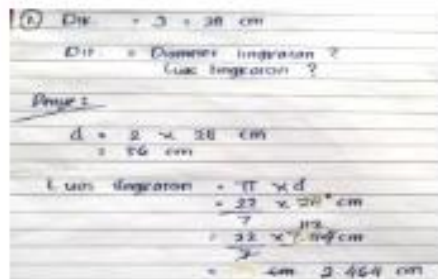 ① Dik = J = 28 cm
Dit = Diameter lingkaran ?
Luas lingkaran ?
d = 2 x 28 cm
= 56 cm
Luas lingkaran = π x d
= 22 x cm
7
= 22 x cm
7
= cm 2.464 cm